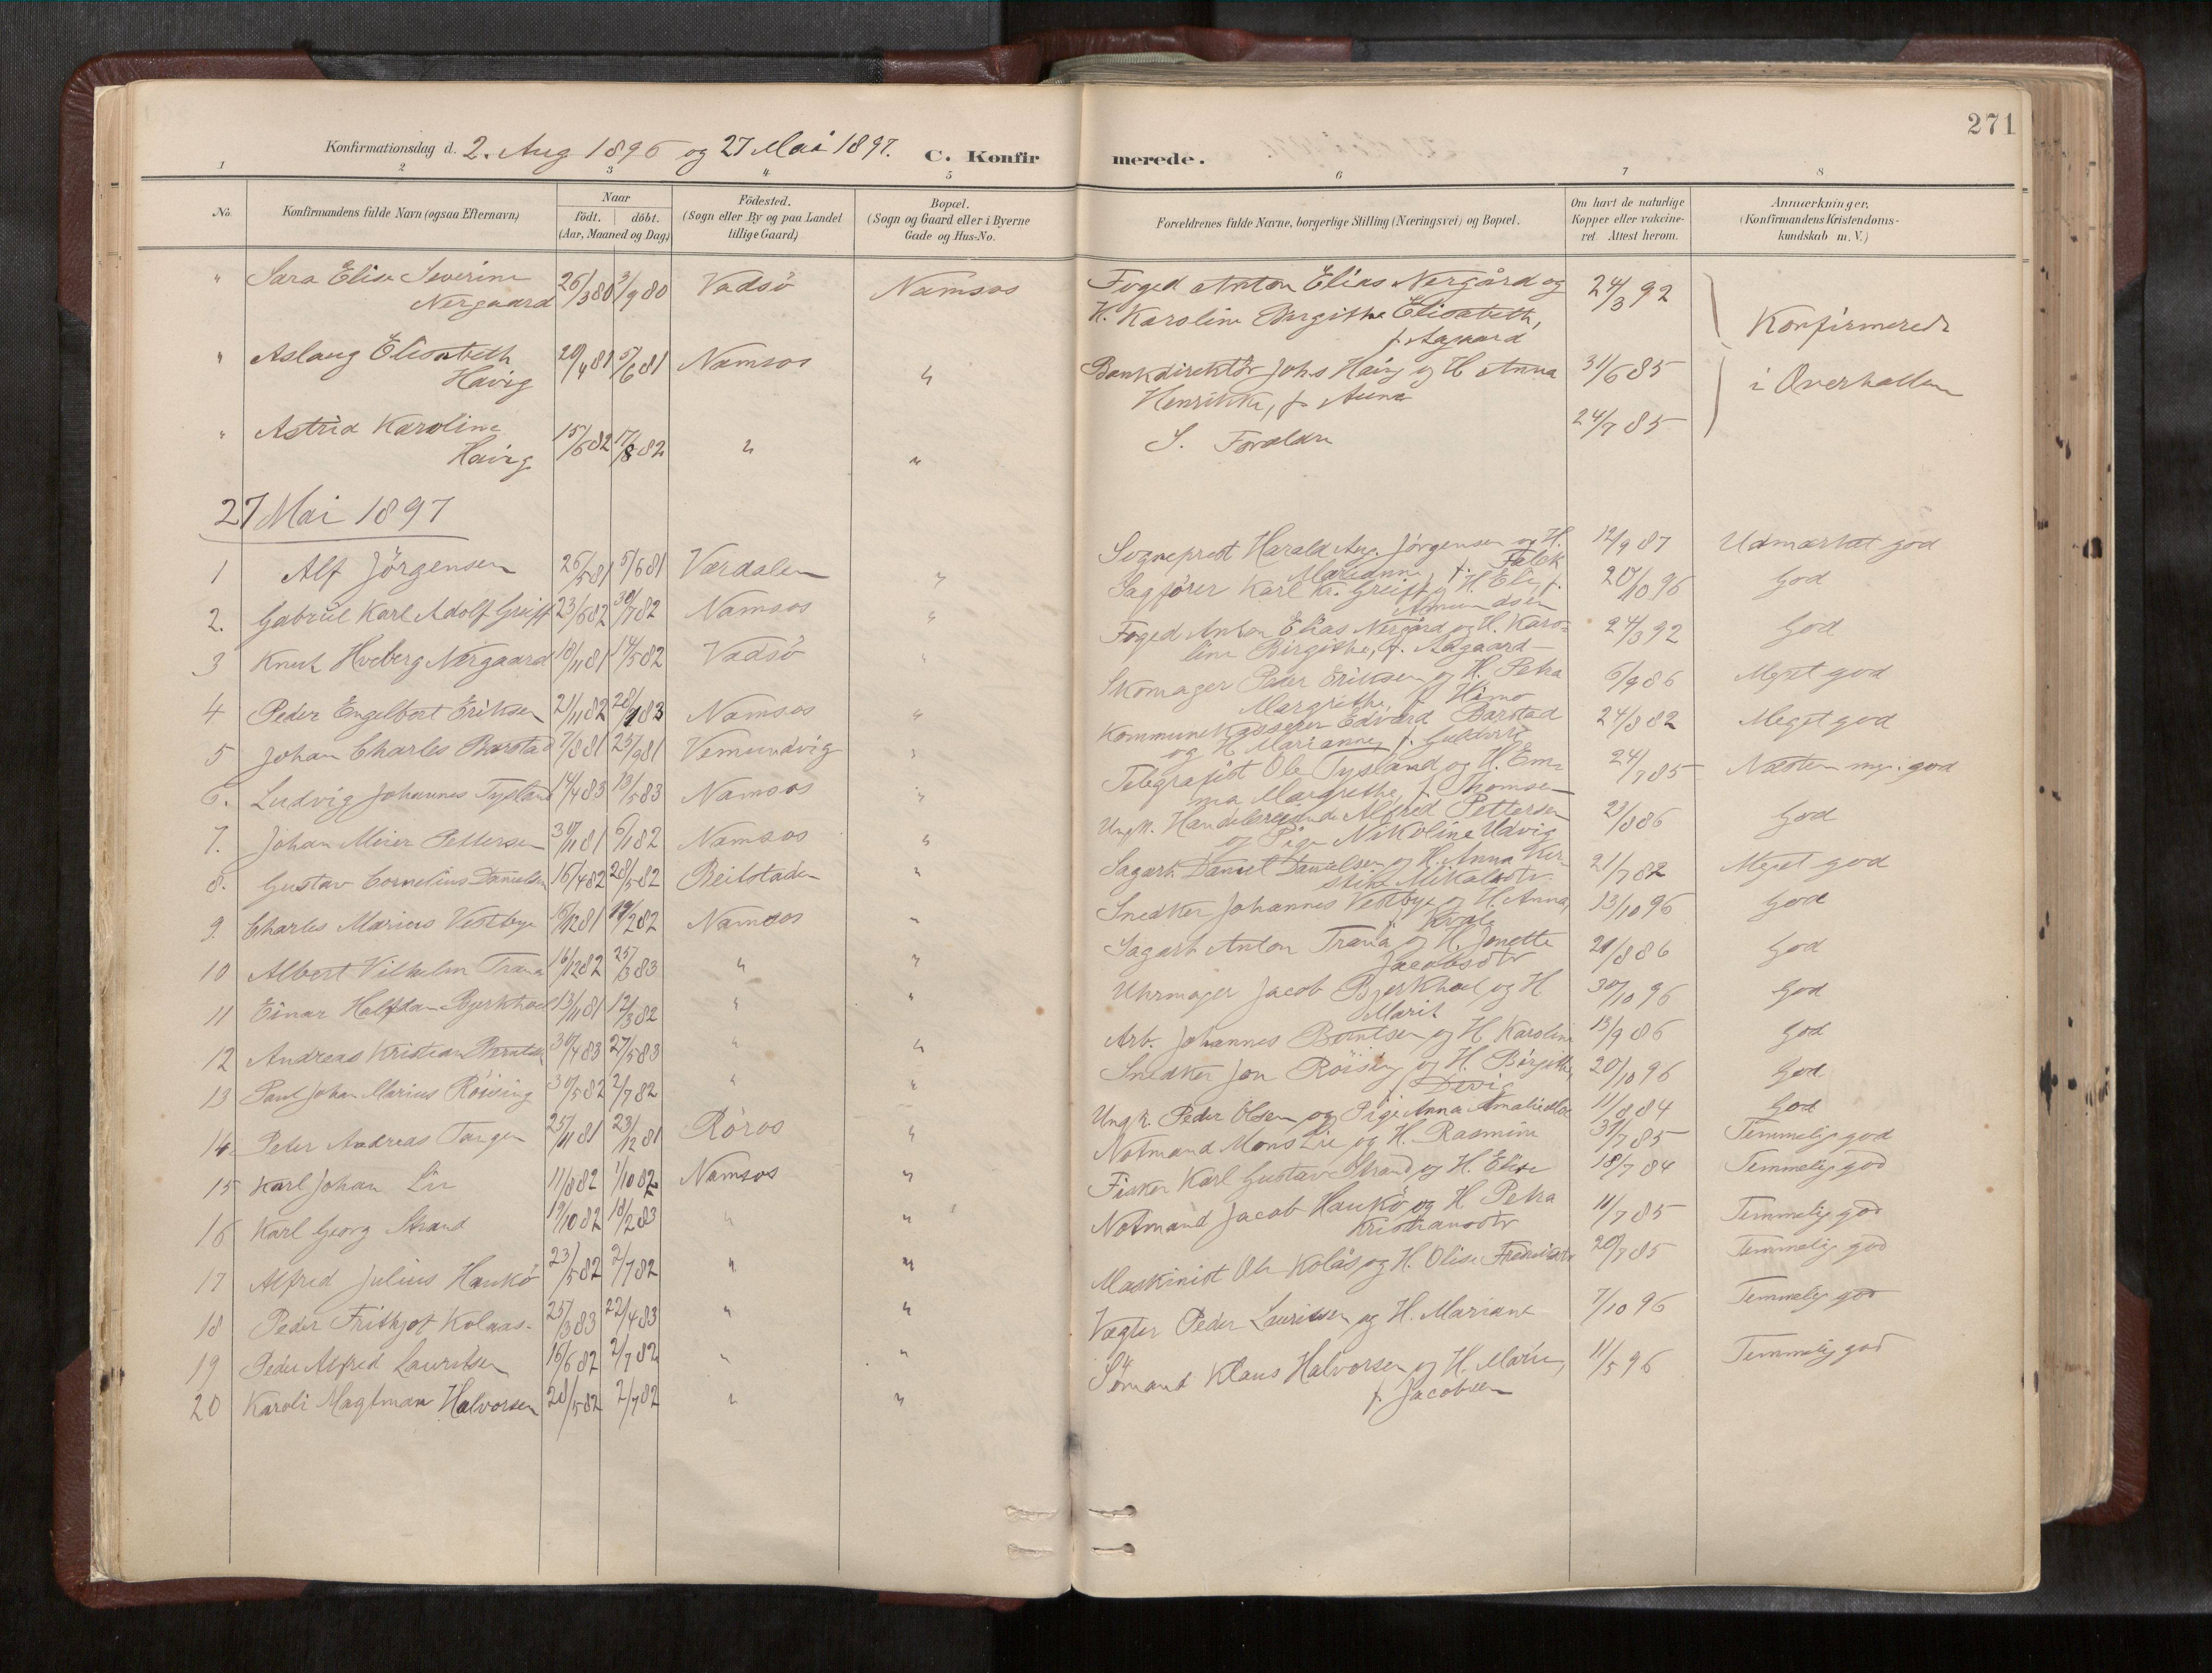 271
Konfirmationsdag d. 2. Aug 1896 og 27 Mai 1897. C. Konfir merede.
1 2 3 4 5 6 7 8
No. Konfirmandens fulde Navn (ogsaa Efternavn) Naar födt. döbt. (Aar, Maaned og Dag) Födested. (Sogn eller By og paa Landet tillige Gaard) Bopæl. (Sogn og Gaard eller i Byerne Gade og Hus-No. Forældrenes fulde Navne, borgerlige Stilling (Næringsvei) og Bopæl. Om havt de naturlige Kopper eller vakcineret. Attest herom. Anmærkninger, (Konfirmandens Kristendomskundskab m. V.)
" Sara Elise Severine 26/3 80 3/9 80 Vadsö Namsos Foged Anton Elias Nergård og 24/3 92
Nergaard H. Karoline Birgithe Elisabeth, Konfirmerede
f. Aagaard
" Aslaug Elisabeth 20/4 81 5/6 81 Namsos " Bankdirektör Johs Havig og H Anna 31/6 85 i Overhallen
Havig Henrikke, f. Aune
" Astrid Karoline 15/6 82 17/8 82 " " S. Forældre 24/7 85
Havig
27 Mai 1897
1 Alf Jörgensen 26/5 81 5/6 81 Værdalen " Sogneprest Harald Aug. Jörgensen og H. 12/9 87 Udmærket god
Marianne, f. Falck
2. Gabriel Karl Adolf Greiff 23/6 82 30/7 82 Namsos " Sagförer Karl Kr. Greiff og H. Eli, f. 20/10 96 God
Amundsen
3 Knut Hveberg Nergaard 18/11 81 14/5 82 Vadsö " Foged Anton Elias Nergård og H. Karo- 24/3 92 God
line Birgithe, f. Aagaard
4 Peder Engelbert Eriksen 21/11 82 28/1 83 Namsos " Skomager Peder Eriksen og H. Petra 6/9 86 Meget god
Margrethe f. Himo
5 Johan Charles Barstad 7/8 81 25/9 81 Vemundvig " Kommunekasserer Edvard Barstad 24/8 82 Meget god
og H Marianne f.
6. Ludvig Johannes Tysland 14/4 83 13/5 83 Namsos " Telegrafist Ole Tysland og H. Em- 24/7 85 Næsten meg. god
ma Margrethe, f. Thomsen
7. Johan Meier Pettersen 30/11 81 6/1 82 Namsos " Ungk. Handelsreisende Alfred Pettersen 21/8 86 God
og Pige Nikoline Udvig
8. Gustav Cornelius Danielsen 16/4 82 28/5 82 Beitstaden " Sagarb. Daniel Danielsen og H. Anna Ker- 21/7 82 Meget god
stine Mikalsdtr
9. Charles Marius Vestbye 16/12 81 19/2 82 Namsos " Snedker Johannes Vestbye og H. Anna, 13/10 96 God
f. Kvale
10 Albert Vilhelm Trana 16/12 82 25/3 83 " " Sagarb Anton Trana og H. Jonette 21/8 86 God
Jacobsdtr
11 Einar Halfdan Bjerkhoel 13/11 81 12/3 82 " " Uhrmager Jacob Bjerkhoel og H. 30/10 96 God
Marit
12 Andreas Kristian Berntsen 30/4 83 27/5 83 " " Arb. Johannes Berntsen og H Karoline 13/9 86 God
13 Paul Johan Marius Röising 30/5 82 2/7 82 " " Snedker Jon Röising og H. Birgithe, 20/10 96 God
f Devig
14 Peter Andreas Tangen 25/11 81 23/12 81 Röros " Ungk. Peder Olsen og Pige Anna Amalie 11/8 84 God
15 Karl Johan Lie 11/8 82 1/10 82 Namsos " Notmand Mons Lie og H. Rasmine 31/7 85 Temmelig god
16 Karl Georg Strand 19/10 82 18/2 83 " " Fisker Karl Gustav Strand og H. Elise 18/7 84 Temmelig god
17 Alfred Julius Haukö 23/5 82 2/7 82 " " Notmand Jacob Haukö og H Petra 11/7 85 Temmelig god
Kristiansdtr
18 Peder Frithjot Kolaas 25/3 83 22/4 83 " " Maskinist Ole Kolås og H. Olise 20/7 85 Temmelig god
19 Peder Alfred Lauritsen 16/6 82 2/7 82 " " Vægter Peder Lauritsen og H. Mariane 7/10 96 Temmelig god
20 Karoli Magtman Halvorsen 28/5 82 2/7 82 " " Sömand Klaus Halvorsen og H. Marie, 11/5 96 Temmelig god
f. Jacobsen